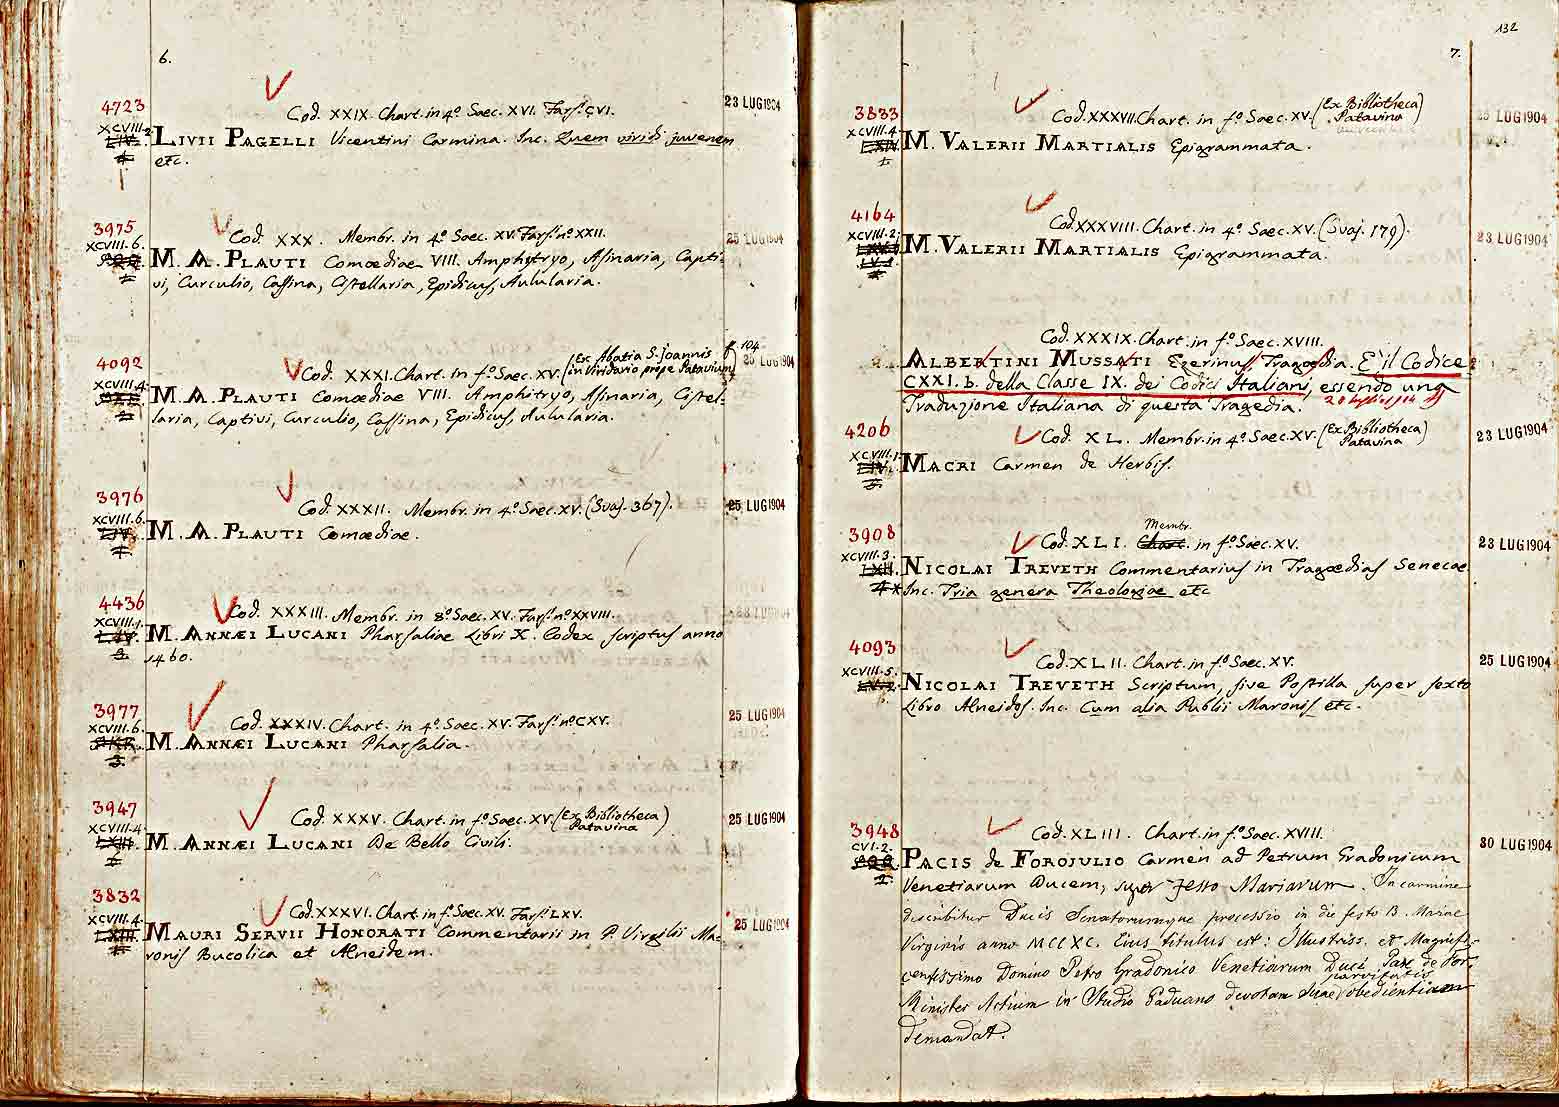 6.
4723
Cod. XXIX. Chart. in 4.º Saec. XVI. Fars.i CVI.
23 LUG 1904
XCVIII.2
LIVII PAGELLI Vicentini Carmina. Inc. Quem viridi juvenem
etc.
3975
Cod. XXX. Membr. in 4.º Saec. XV. Fars.i nº XXII.
25 LUG 1904
XCVIII.6.
M. A. PLAUTI Comœdiae VIII. Amphytryo, Asinaria, Capti=
vi, Curculio, Cassina, Cistellaria, Epidicus, Aulularia.
4092
Cod. XXXI. Chart. in f.º Saec. XV. (Ex Abatia S. Joannis
in Viridario prope Patavium)
f. 104
25 LUG 1904
XCVIII.4.
M. A. PLAUTI Comœdiae VIII. Amphitryo, Asinaria, Cistel=
laria, Captivi, Curculio, Cassina, Epidicus, Aulularia.
3976
Cod. XXXII. Membr. in 4.º Saec. XV. (Svaj. 367).
25 LUG 1904
XCVIII.6.
M. A. PLAUTI Comœdiae.
4436
Cod. XXXIII. Membr. in 8.º Saec. XV. Fars.i nº XXVIII.
XCVIII.1.
M. ANNÆI LUCANI Pharsaliae Libri X. Codex scriptus anno
1460.
3977
Cod. XXXIV. Chart. in 4.º Saec. XV. Fars.i nº CXV.
25 LUG 1904
XCVIII.6.
M. ANNÆI LUCANI Pharsalia.
3947
Cod. XXXV. Chart. in f.º Saec. XV. (Ex Bibliotheca
Patavina)
25 LUG 1904
XCVIII.4.
M. ANNÆI LUCANI De Bello Civili.
3832
Cod. XXXVI. Chart. in f.º Saec. XV. Fars.i LXV.
25 LUG 1904
XCVIII.4.
MAURI SERVII HONORATI Commentarii in P. Virgilii Ma=
ronis Bucolica et Æneidem.
132
7.
3833
Cod. XXXVII. Chart. in f.º Saec. XV. (Ex Bibliotheca
Patavina)
25 LUG 1904
XCVIII.4.
M. VALERII MARTIALIS Epigrammata.
4164
Cod. XXXVIII. Chart. in 4.º Saec. XV. (Svaj. 179).
23 LUG 1904
XCVIII.2.
M. VALERII MARTIALIS Epigrammata.
Cod. XXXIX. Chart. in f.º Saec. XVIII.
ALBERTINI MUSSATI Ezerinus, Tragœdia. E' il Codice
CXXI. b. della Classe IX. dei Codici Italiani, essendo una
Traduzione Italiana di questa Tragedia.
4206
Cod. XL. Membr. in 4.º Saec. XV. (Ex Bibliotheca
Patavina)
23 LUG 1904
XCVIII.1.
MACRI Carmen de Herbis.
3908
Membr.
Cod. XLI. Chart. in f.º Saec. XV.
23 LUG 1904
XCVIII.3.
NICOLAI TREVETH Commentarius in Tragœdias Senecae
Inc. Tria genera Theologiae etc
4093
Cod. XLII. Chart. in f.º Saec. XV.
25 LUG 1904
XCVIII.5.
NICOLAI TREVETH Scriptum, sive Postilla super sexto
Libro Æneidos. Inc. Cum alia Publii Maronis etc.
3948
Cod. XLIII. Chart. in f.º Saec. XVIII.
30 LUG 1904
CVI.2.
PACIS de FOROJULIO Carmen ad Petrum Gradonicum
Venetiarum Ducem, super Festo Mariarum. In carmine
describitur Ducis Senatorumque processio in die festo B. Mariae
Virginis anno MCCXC. Eius titulus est: Illustriss. et Magnifi=
centissimo Domino Petro Gradonico Venetiarum Duci Pax de For.
parvitatis
Minister Artium in Studio Paduano devotam suae obedientiam
demandat.